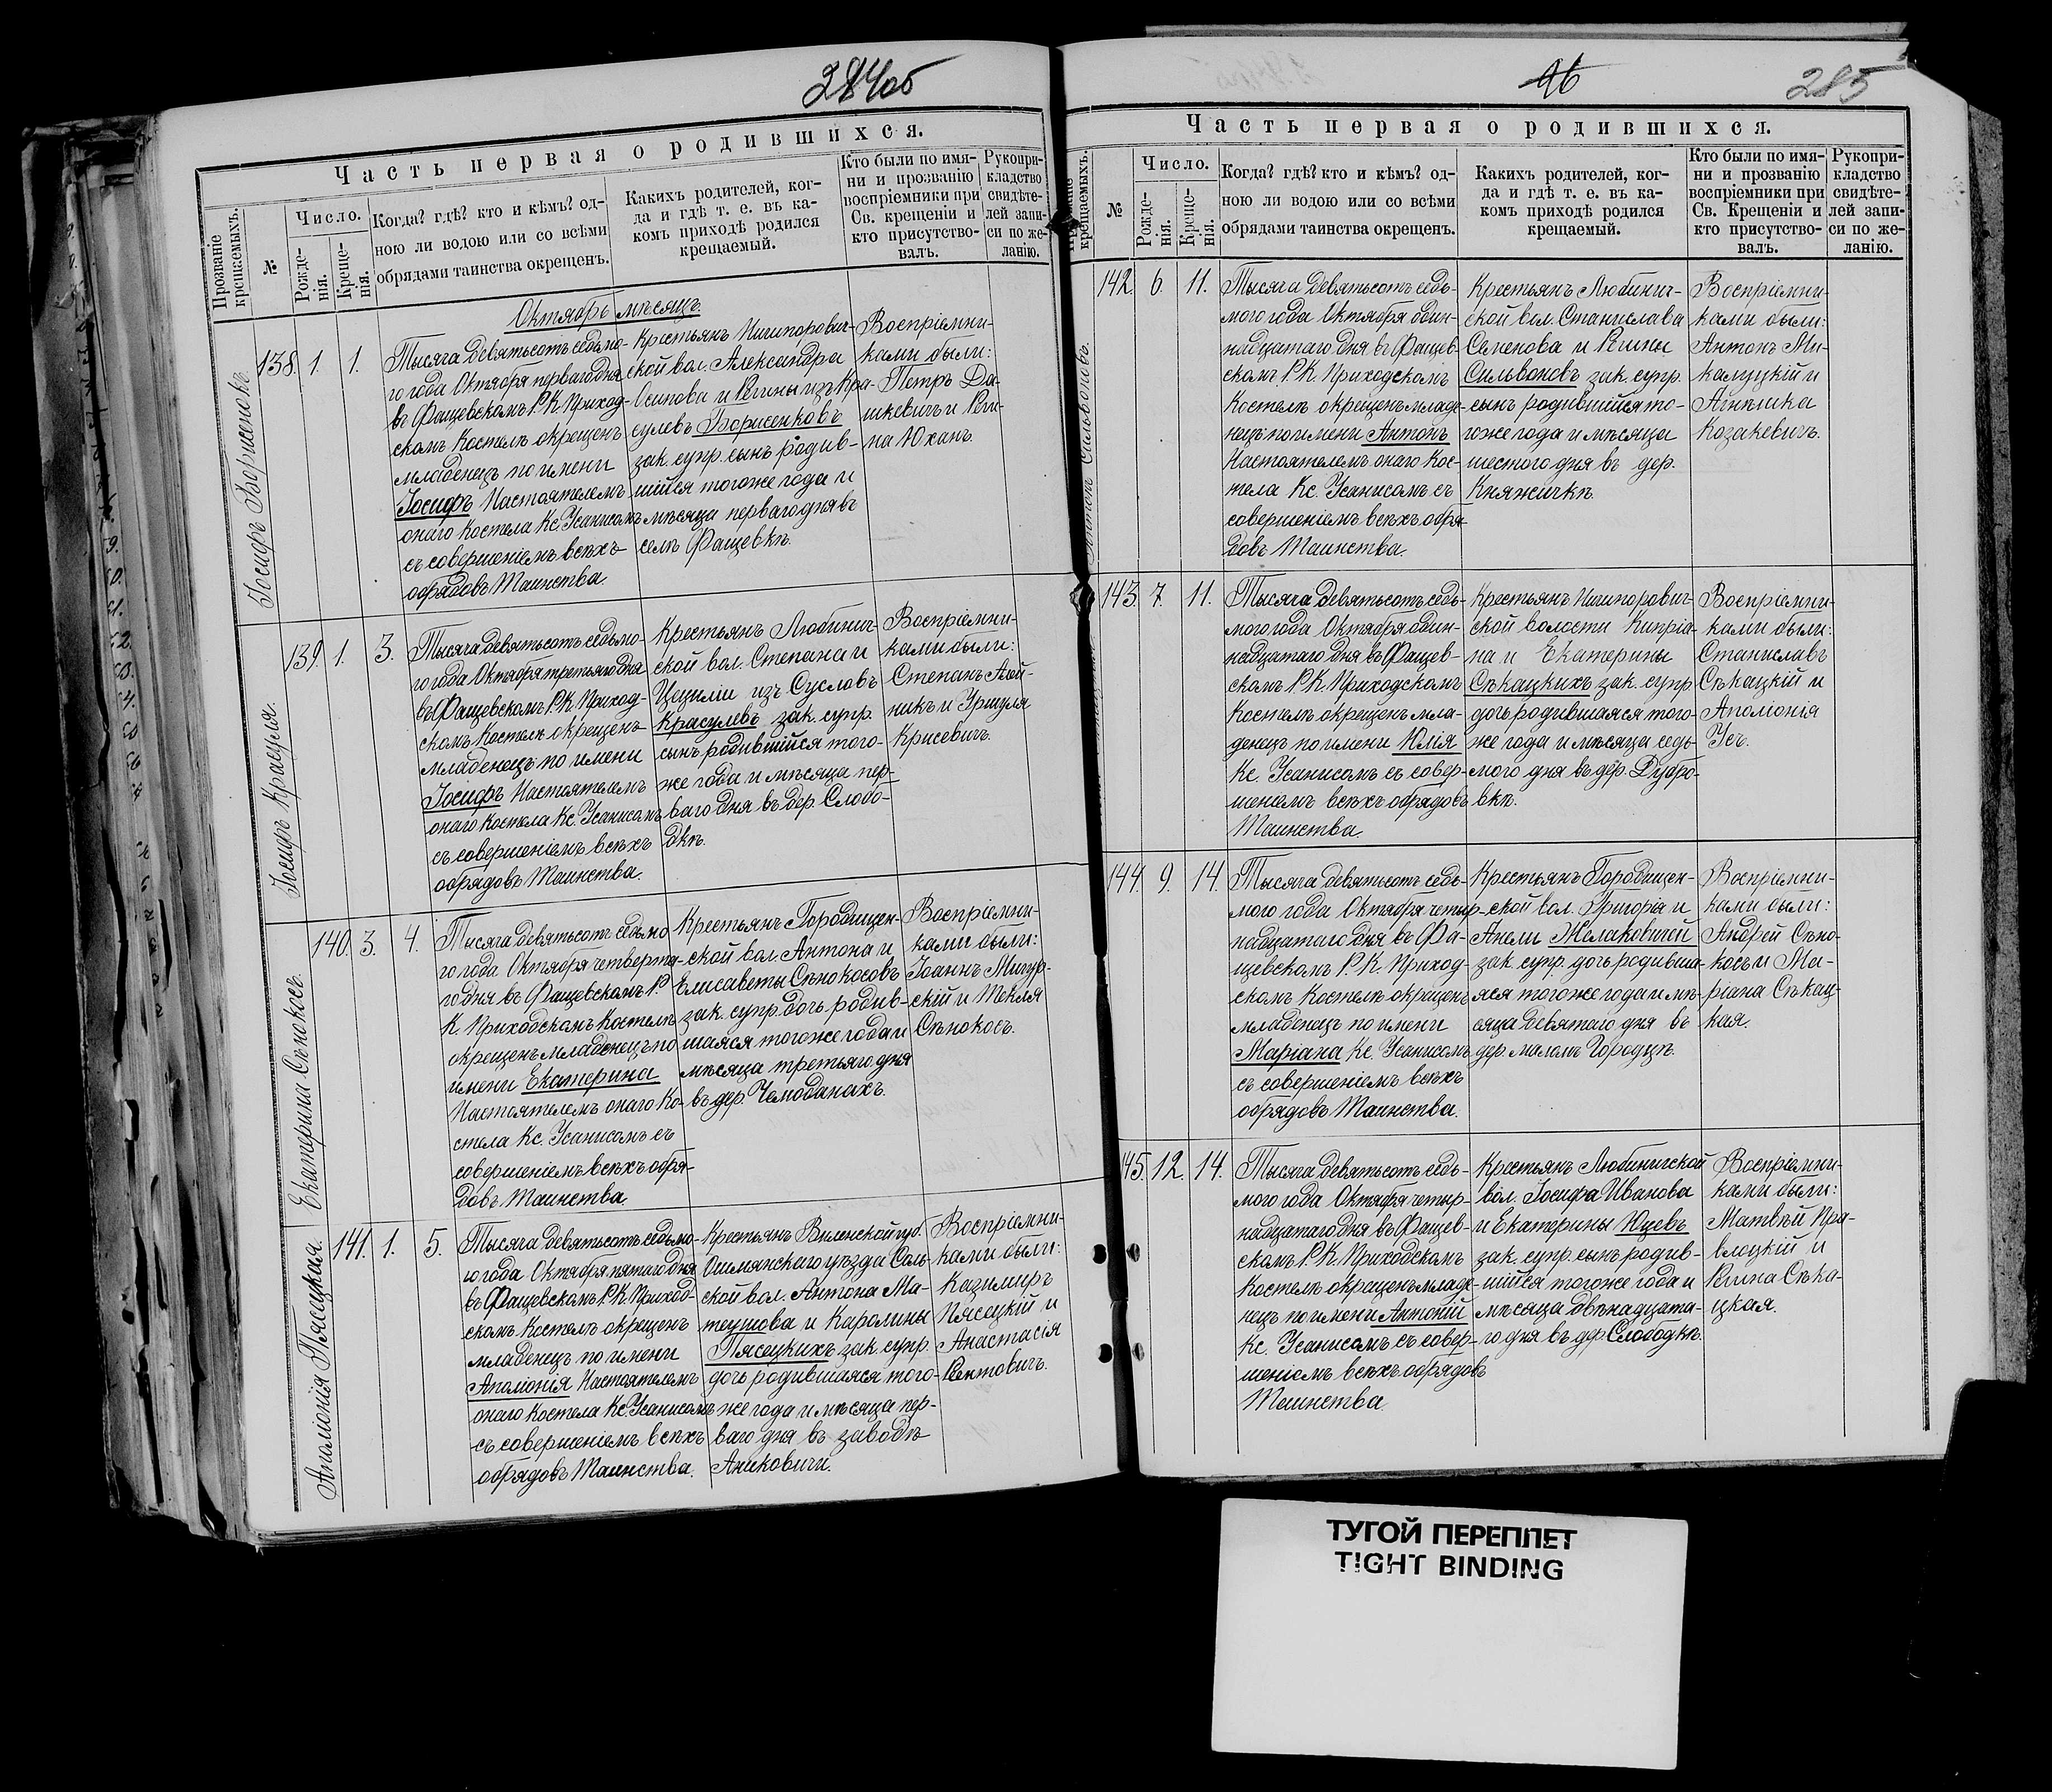 284об
Часть первая о родившихся.
Прозваніе крещаемыхъ.
№
Число.
Рожде-
нія.
Креще-
нія.
Когда? гдѣ? кто и кѣмъ? од-
ною ли водою или со всѣми
обрядами таинства окрещенъ.
Какихъ родителей, ког-
да и гдѣ т. е. въ ка-
комъ приходѣ родился
крещаемый.
Кто были по имя-
ни и прозванію
воспріемники при
Св. крещеніи и
кто присутство-
валъ.
Рукопри-
кладство
свидѣте-
лей запи-
си по же-
ланію.
Октябрь мѣсяцъ.
Іосифъ Борисенокъ.
138. 1. 1.
Тысяча девятьсотъ седьмо-
го года Октября перваго дня
въ Фащевскомъ Р.К. Приход-
скомъ Костелѣ окрещенъ
младенецъ по имени
Іосифъ Настоятелемъ
онаго Костела Кс. Усанисомъ
съ совершеніемъ всѣхъ
обрядовъ Таинства.
Крестьянъ Ничипорович-
ской вол. Александра
Осипова и Регины изъ Кра-
сулевъ Борисенковъ
зак. супр. сынъ родив-
шійся тогоже года и
мѣсяца перваго дня въ
селѣ Фащевкѣ.
Воспріемни-
ками были:
Петръ Да-
шкевичъ и Реги-
на Юханъ.
Іосифъ Красуля.
139. 1. 3.
Тысяча девятьсотъ седьмо-
го года Октября третьяго дня
въ Фащевскомъ Р.К. Приход-
скомъ Костелѣ окрещенъ
младенецъ по имени
Іосифъ Настоятелемъ
онаго Костела Кс. Усанисомъ
съ совершеніемъ всѣхъ
обрядовъ Таинства.
Крестьянъ Любинич-
ской вол. Степана и
Цециліи изъ Сусловъ
Красулевъ зак. супр.
сынъ родившійся того-
же года и мѣсяца пер-
ваго дня въ дер. Слобо-
дкѣ.
Воспріемни-
ками были:
Степанъ Алей-
никъ и Уршуля
Крисевичъ.
Екатерина Сѣнокосъ.
140. 3. 4.
Тысяча девятьсотъ седьмо
го года Октября четверта-
го дня въ Фащевскомъ Р.
К. Приходскомъ Костелѣ
окрещенъ младенецъ по
имени Екатерина
Настоятелемъ онаго Ко-
стела Кс. Усанисомъ съ
совершеніемъ всѣхъ обря-
довъ Таинства.
Крестьянъ Городищен-
ской вол. Антона и
Елисаветы Сѣнокосовъ
зак. супр. дочь родив-
шаяся тогоже года и
мѣсяца третьяго дня
въ дер. Чемоданахъ.
Воспріемни-
ками были:
Іоаннъ Мигур-
скій и Текля
Сѣнокосъ.
Аполонія Пясецкая.
141. 1. 5.
Тысяча девятьсотъ седьмо-
го года Октября пятаго дня
въ Фащевскомъ Р.К. Приход-
скомъ Костелѣ окрещенъ
младенецъ по имени
Аполонія Настоятелемъ
онаго Костела Кс. Усанисомъ
съ совершеніемъ всѣхъ
обрядовъ Таинства.
Крестьянъ Виленской губ.
Ошмянскаго уѣзда Соль-
ской вол. Антона Ма-
теушова и Каролины
Пясецкихъ зак. супр.
дочь родившаяся того-
же года и мѣсяца пер-
ваго дня въ заводѣ
Аниковичи.
Воспріемни-
ками были:
Казимиръ
Пясецкій и
Анастасія
Рентовичъ.
96
285
Часть первая о родившихся.
крещаемыхъ.
№
Число.
Рожде-
нія.
Креще-
нія.
Когда? гдѣ? кто и кѣмъ? од-
ною ли водою или со всѣми
обрядами таинства окрещенъ.
Какихъ родителей, ког-
да и гдѣ т. е. въ ка-
комъ приходѣ родился
крещаемый.
Кто были по имя-
ни и прозванію
воспріемники при
Св. Крещеніи и
кто присутство-
валъ.
Рукопри-
кладство
свидѣте-
лей запи-
си по же-
ланію.
Антонъ Сильвоновъ.
142. 6. 11.
Тысяча девятьсотъ седь-
мого года Октября один-
надцатаго дня въ Фащев-
скомъ Р.К. Приходскомъ
Костелѣ окрещенъ младе-
нецъ по имени Антонъ
Настоятелемъ онаго Кос-
тела Кс. Усанисомъ съ
совершеніемъ всѣхъ обря-
довъ Таинства.
Крестьянъ Любинич-
ской вол. Станислава
Семенова и Регины
Сильвоновъ зак. супр.
сынъ родившійся то-
гоже года и мѣсяца
шестого дня въ дер.
Княжичкѣ.
Воспріемни-
ками были:
Антонъ Ми-
калуцкій и
Агнѣшка
Козакевичъ.
143. 7. 11.
Тысяча девятьсотъ седь-
мого года Октября один-
надцатаго дня въ Фащев-
скомъ Р.К. Приходскомъ
Костелѣ окрещенъ мла-
денецъ по имени Юлія
Кс. Усанисомъ съ совер-
шеніемъ всѣхъ обрядовъ
Таинства.
Крестьянъ Ничипорович-
ской волости Кипріа-
на и Екатерины
Сѣкацкихъ зак. супр
дочь родившаяся того-
же года и мѣсяца седь-
мого дня въ дер. Дубро-
вкѣ.
Воспріемни-
ками были:
Станиславъ
Сѣкацкій и
Аполіонія
Усъ.
144. 9. 14.
Тысяча девятьсотъ седь-
мого года Октября четыр-
надцатаго дня въ Фа-
щевскомъ Р.К. Приход-
скомъ Костелѣ окрещенъ
младенецъ по имени
Маріана Кс. Усанисомъ
съ совершеніемъ всѣхъ
обрядовъ Таинства.
Крестьянъ Городищен-
ской вол. Григорія и
Анели Желаковичей
зак. супр. дочь родивша-
яся тогоже года и мѣ-
сяца девятаго дня въ
дер. Маломъ Городцѣ.
Воспріемни-
ками были:
Андрей Сѣно-
косъ и Ма-
ріана Сѣкац-
кая.
145. 12. 14.
Тысяча девятьсотъ седь-
мого года Октября четыр-
надцатаго дня въ Фащев-
скомъ Р.К. Приходскомъ
Костелѣ окрещенъ младе-
нецъ по имени Антоній
Кс. Усанисомъ съ совер-
шеніемъ всѣхъ обрядовъ
Таинства.
Крестьянъ Любиничской
вол. Іосифа Иванова
и Екатерины Юцевъ
зак. супр. сынъ родив-
шійся тогоже года и
мѣсяца двѣнадцата-
го дня въ дер. Слободкѣ.
Воспріемни-
ками были:
Матвѣй Пра-
влоцкій и
Регина Сѣка-
цкая.
ТУГОЙ ПЕРЕПЛЕТ
TIGHT BINDING